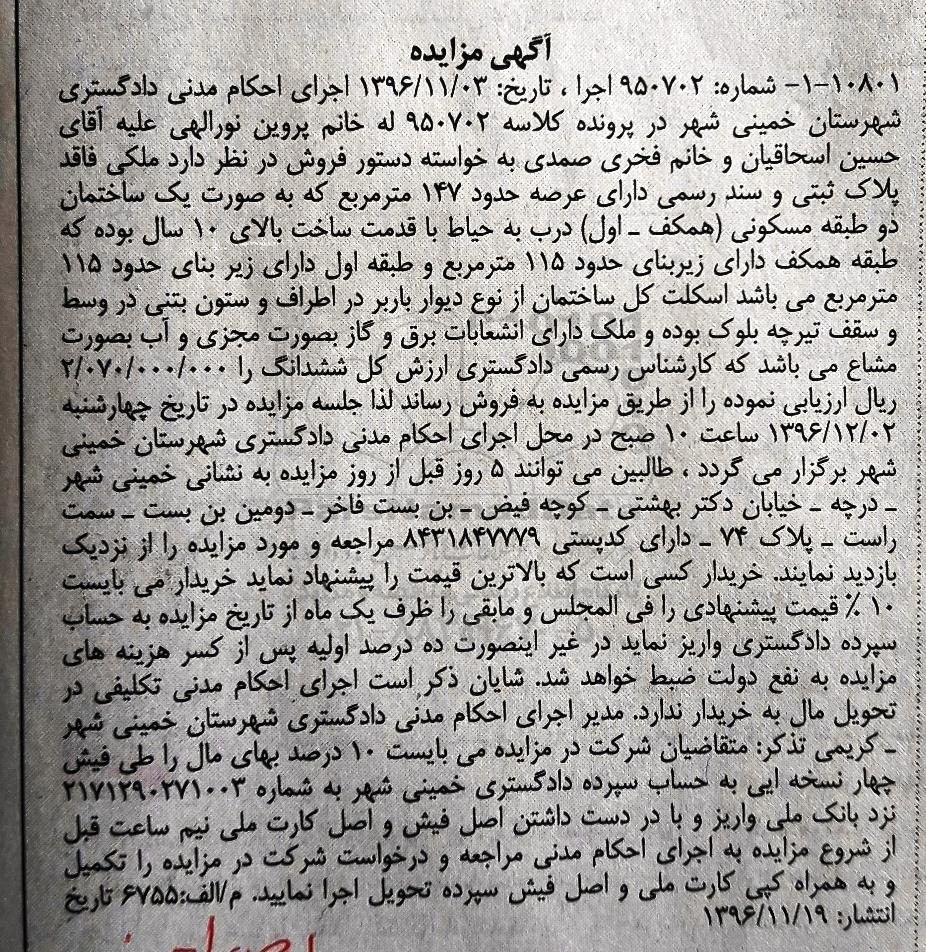 آگهی مزایده
۱۰۸۰۱-۱- شماره: ۹۵۰۷۰۲ اجرا ، تاریخ: ۱۳۹۶/۱۱/۰۳ اجرای احکام مدنی دادگستری
شهرستان خمینی شهر در پرونده کلاسه ۹۵۰۷۰۲ له خانم پروین نورالهی علیه آقای
حسین اسحاقیان و خانم فخری صمدی به خواسته دستور فروش در نظر دارد ملکی فاقد
پلاک ثبتی و سند رسمی دارای عرصه حدود ۱۴۷ مترمربع که به صورت یک ساختمان
دو طبقه مسکونی (همکف ـ اول) درب به حیاط با قدمت ساخت بالای ۱۰ سال بوده که
طبقه همکف دارای زیربنای حدود ۱۱۵ مترمربع و طبقه اول دارای زیر بنای حدود ۱۱۵
مترمربع می باشد اسکلت کل ساختمان از نوع دیوار باربر در اطراف و ستون بتنی در وسط
و سقف تیرچه بلوک بوده و ملک دارای انشعابات برق و گاز بصورت مجزی و آب بصورت
مشاع می باشد که کارشناس رسمی دادگستری ارزش کل ششدانگ را ۲/۰۷۰/۰۰۰/۰۰۰
ریال ارزیابی نموده را از طریق مزایده به فروش رساند لذا جلسه مزایده در تاریخ چهارشنبه
۱۳۹۶/۱۲/۰۲ ساعت ۱۰ صبح در محل اجرای احکام مدنی دادگستری شهرستان خمینی
شهر برگزار می گردد ، طالبین می توانند ۵ روز قبل از روز مزایده به نشانی خمینی شهر
ـ درچه ـ خیابان دکتر بهشتی ـ کوچه فیض ـ بن بست فاخر ـ دومین بن بست ـ سمت
راست ـ پلاک ۷۴ ـ دارای کدپستی ۸۴۳۱۸۴۷۷۷۹ مراجعه و مورد مزایده را از نزدیک
بازدید نمایند. خریدار کسی است که بالاترین قیمت را پیشنهاد نماید خریدار می بایست
۱۰ ٪ قیمت پیشنهادی را فی المجلس و مابقی را ظرف یک ماه از تاریخ مزایده به حساب
سپرده دادگستری واریز نماید در غیر اینصورت ده درصد اولیه پس از کسر هزینه های
مزایده به نفع دولت ضبط خواهد شد. شایان ذکر است اجرای احکام مدنی تکلیفی در
تحویل مال به خریدار ندارد. مدیر اجرای احکام مدنی دادگستری شهرستان خمینی شهر
ـ کریمی تذکر: متقاضیان شرکت در مزایده می بایست ۱۰ درصد بهای مال را طی فیش
چهار نسخه ایی به حساب سپرده دادگستری خمینی شهر به شماره ۲۱۷۱۲۹۰۲۷۱۰۰۳
نزد بانک ملی واریز و با در دست داشتن اصل فیش و اصل کارت ملی نیم ساعت قبل
از شروع مزایده به اجرای احکام مدنی مراجعه و درخواست شرکت در مزایده را تکمیل
و به همراه کپی کارت ملی و اصل فیش سپرده تحویل اجرا نمایید. م/الف:۶۷۵۵ تاریخ
انتشار: ۱۳۹۶/۱۱/۱۹